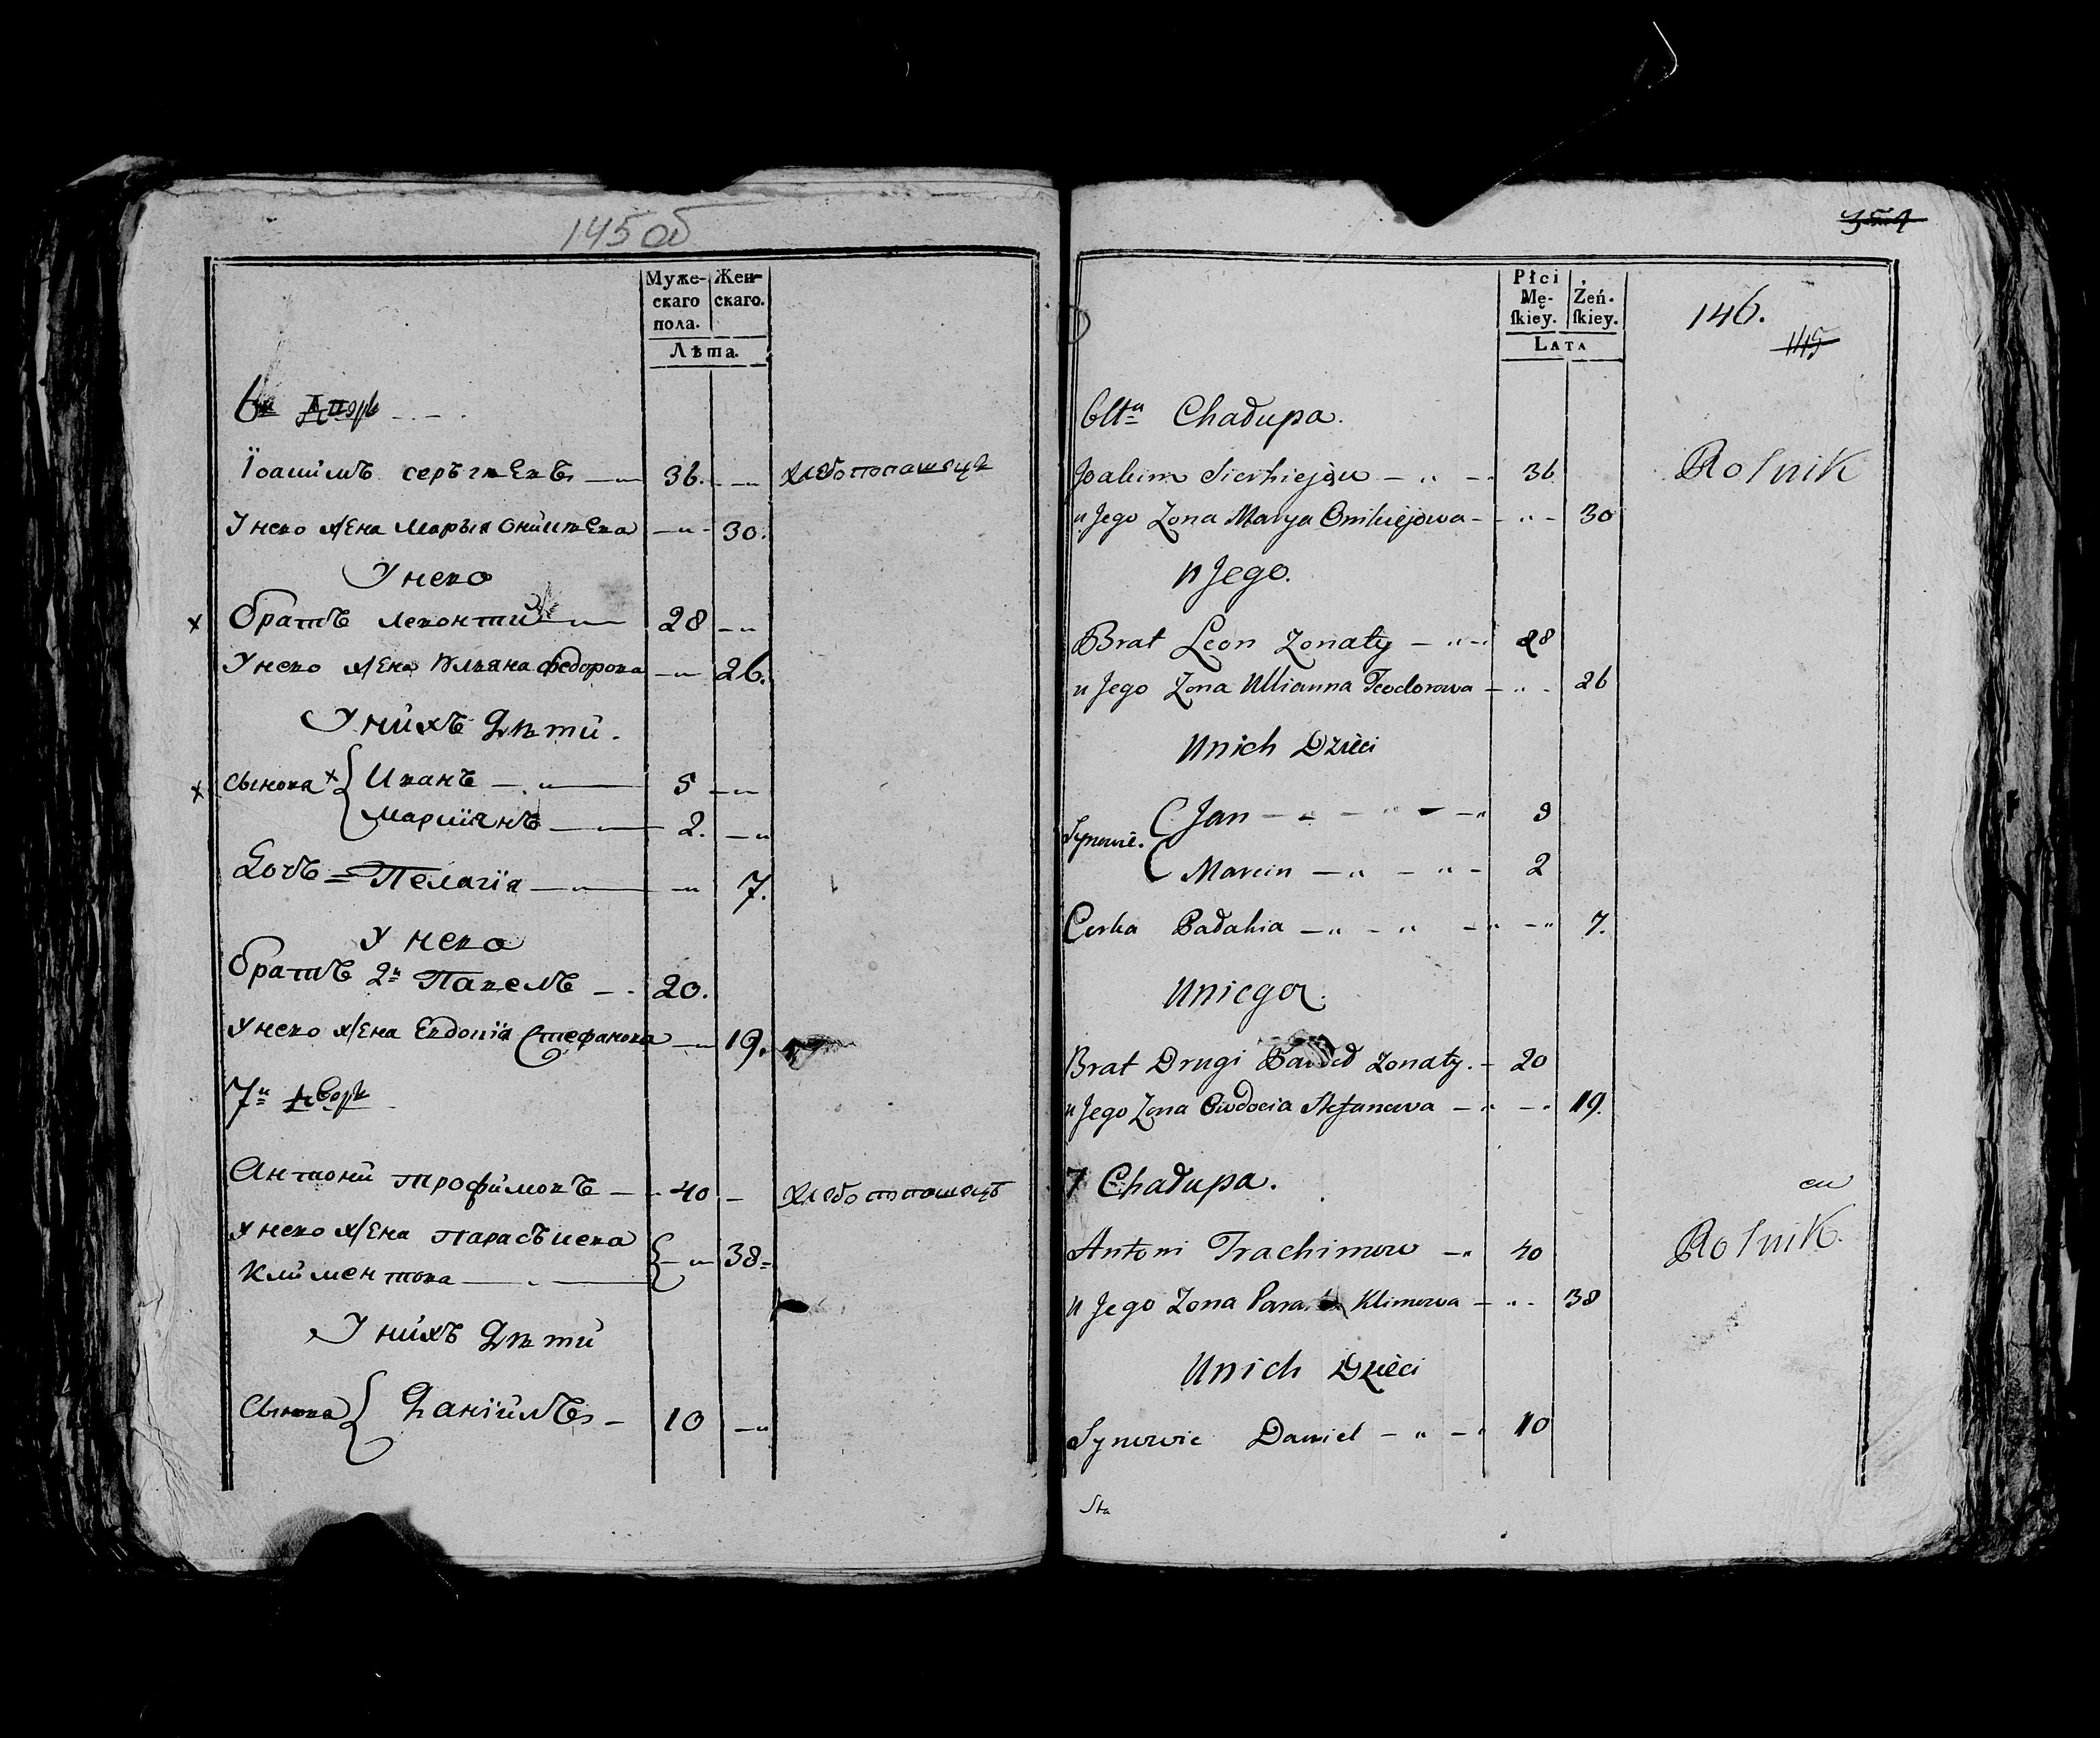 145 об
Муже-
скаго
пола.
Жен-
скаго.
Лѣта.
6й дворъ
Їоакимъ сергѣевъ 36. хлебопашецъ
У него жена Марья Оникѣева 30.
У него
x братъ леонтий 28
У него жена Ульяна федорова 26.
У нихъ Дѣти.
x сынова x { Иванъ 5
Марцїянъ 2.
Дочь = Пелагїя 7.
У него
братъ 2й Павелъ 20.
У него жена Евдокїя Стефанова 19.
7й дворъ
Антони трофимовъ 40 хлебопашецъ
У него жена парасъкева
климентова } 38
У нихъ Дѣти
Сынова { Данїилъ 10
354
Płci
Mę-
ſkiey.
Żeń-
ſkiey.
LATA
146.
145
6ta Chałupa.
Joahim Sierhiejów 36 Rolnik
u Jego Zona Marya Onikiejowa 30
u Jego.
Brat Leon Zonaty 28
u Jego Zona Ullianna Teodorowa 26
Unich Dzieci
Synowie. { Jan 3
Marcin 2
Corka Pałahia 7.
Uniego.
Brat Drugi Paweł zonaty. 20
u Jego Zona Owdocia Stefanowa 19.
7 Chałupa.
Antoni Trachimow 40 Rolnik.
u Jego Zona Klimowa 38
Unich Dzieci
Synowie Daniel 10
Sta